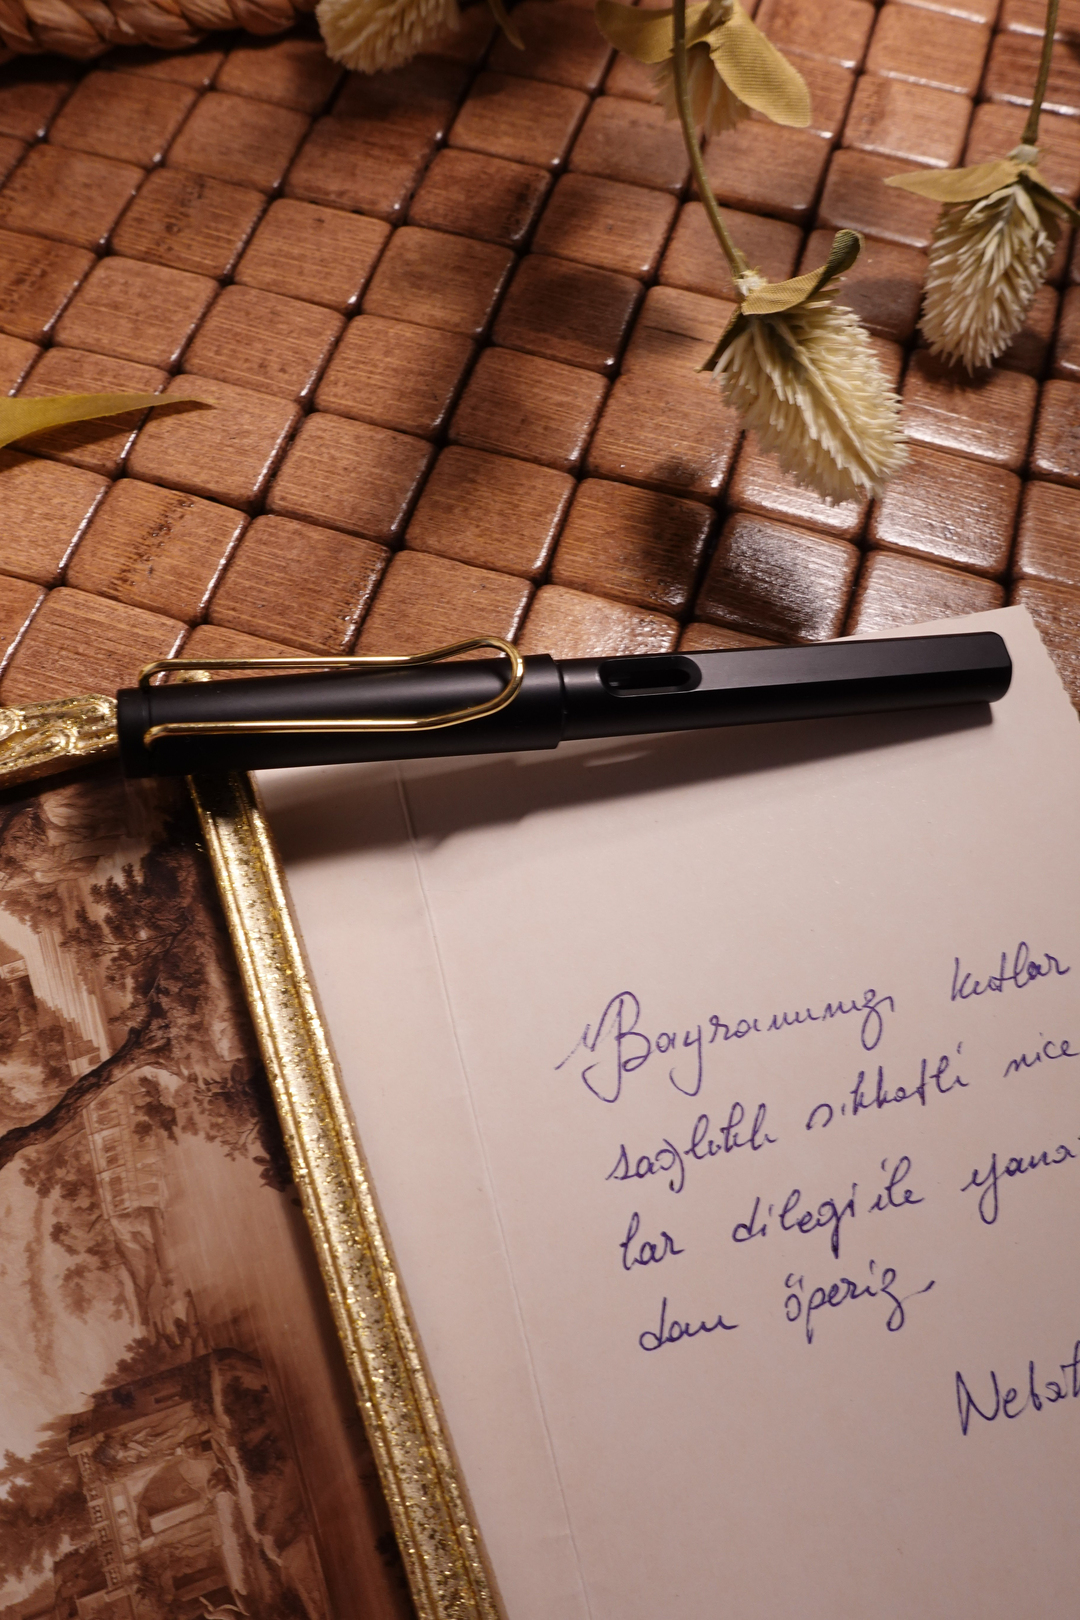 Bayramınızı kutlar
sağlıklı sıhhatli nice
lar dileği ile yana
dan öperiz.
Nebat